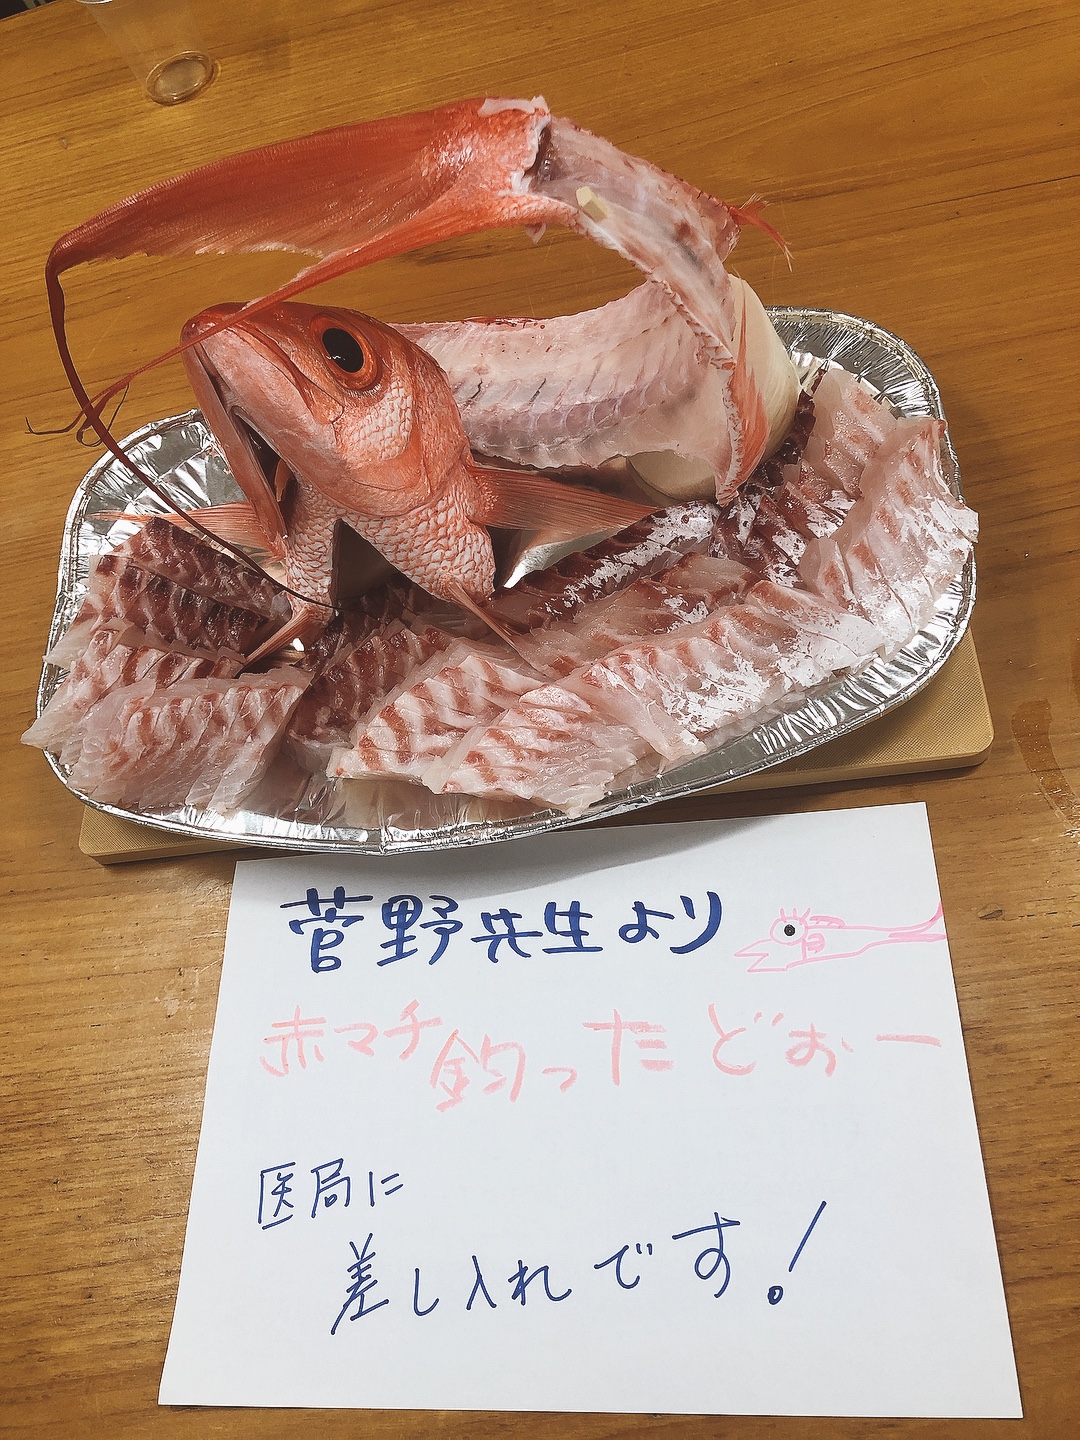 菅野先生より
赤マチ釣ったどぉー
医局に
差し入れです!